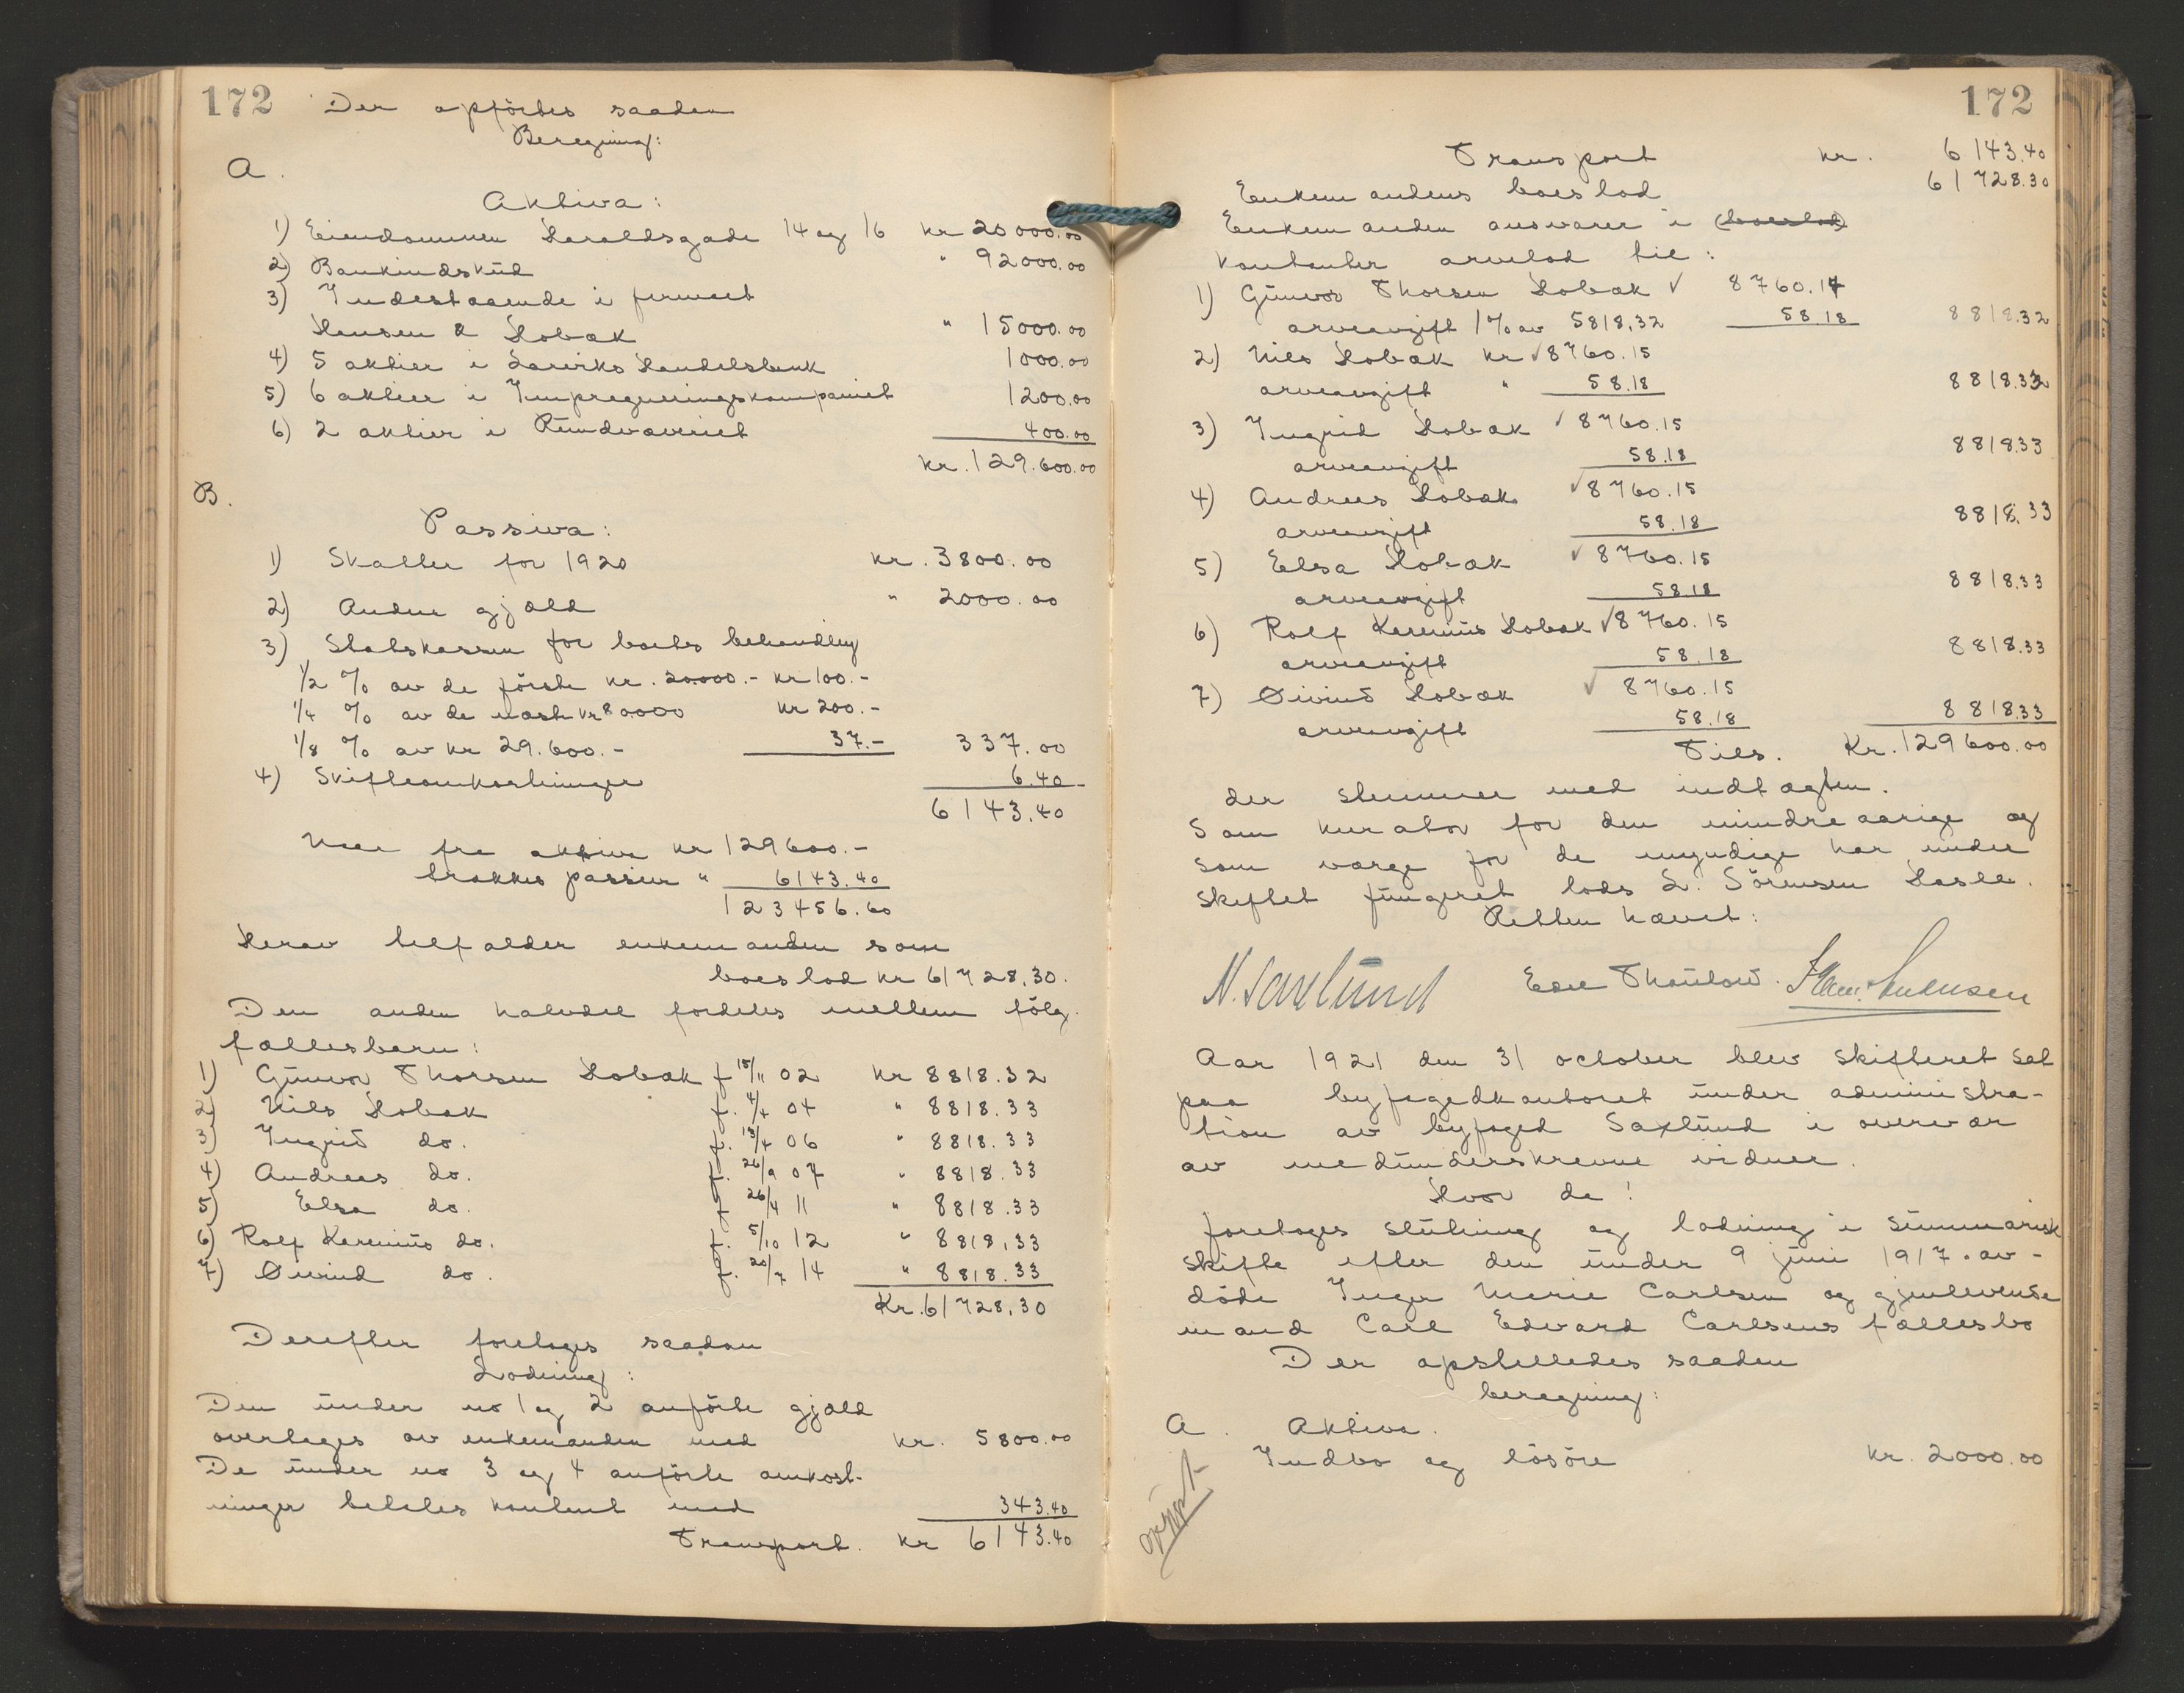 172 Der opförtes saaden
Beregning:
A.
Aktiva:
1) Eiendommen Haraldsgade 14 og 16 kr 20000.00
2) Bankindskud " 92000.00
3) Indestaaende i firmaet
Hansen & Hobæk " 15000.00
4) 5 aktier i Larviks Handelsbank 1000.00
5) 6 aktier i Impregneringskompaniet 1200.00
6) 2 aktier i 400.00
kr. 129.600.00
B.
Passiva:
1) Skatter for 1920 kr. 3800.00
2) Anden gjæld " 2000.00
3) Statskassen for boets behandling
1/2 % av de förste kr. 20.000.- kr 100.-
1/4 % av de næste kr 80000 kr 200.-
1/8 % av kr 29.600.- 37.- 337.00
4) Skifteomkostninger 6.40
6143.40
Naar fra aktiva kr 129600.-
trækkes passiva " 6143.40
123456.60
Herav tilfalder enkemanden som
boeslod kr 61728.30.
Den anden halvdel fordeles mellem fölg.
fællesbarn:
1) Gunvor Thorsen Hobæk f 15/11 02 kr 8818.32
2) Nils Hobæk f. 4/4 04 " 8818.33
3) Ingrid do. f. 13/4 06 " 8818.33
4) Andreas do. f. 26/9 07 " 8818.33
5) Elsa do. f 26/4 11 " 8818.33
6) Rolf Kerenius do. f. 5/10 12 " 8818,33
7) Øivind do. f. 20/7 14 " 8818.33
Kr. 61728,30
Derefter foretoges saadan
Lodning:
Den under no 1 og 2 anförte gjæld
overtages av enkemanden med kr. 5800.00
De under no 3 og 4 anförte omkost-
ninger betales kontant med 343.40
Transport. kr 6143.40
172
Transport kr. 6143.40
Enkemandens boeslod 61728.30
Enkemanden ansvarer i (boeslod)
kontanter arvelod til:
1) Gunvor Thorsen Hobæk ✓ 8760.14
arveavgift 1% av 5818,32 58.18 8818.32
2) Nils Hobæk kr ✓ 8760.15
arveavgift " 58.18 8818.33
3) Ingrid Hobæk ✓ 8760.15
arveavgift 58.18 8818.33
4) Andreas Hobæk ✓ 8760.15
arveavgift 58.18 8818.33
5) Elsa Hobæk ✓ 8760.15
arveavgift 58.18 8818.33
6) Rolf Kerenius Hobæk ✓ 8760.15
arveavgift 58.18 8818.33
7) Øivind Hobæk ✓ 8760.15
arveavgift 58.18 8818.33
Tils. Kr. 129600.00
der stemmer med indtægten.
Som kurator for den mindreaarige og
som værge for de umyndige har under
skiftet fungeret lods L. Sörensen Hasle.
Retten hævet:
N. Saxlund Thaulow.
Aar 1921 den 31 october blev skifteret sat
paa byfogedkontoret under administra-
tion av byfoged Saxlund i overvær
av medunderskrevne vidner.
Hvor da!
foretoges slutning og lodning i summarisk
skifte efter den under 9 juni 1917 av-
döde Inger Marie Carlsen og gjenlevende
mand Carl Edvard Carlsens fællesbo
Der opstilledes saaden
beregning:
A. Aktiva.
Indbo og lösöre kr. 2000.00